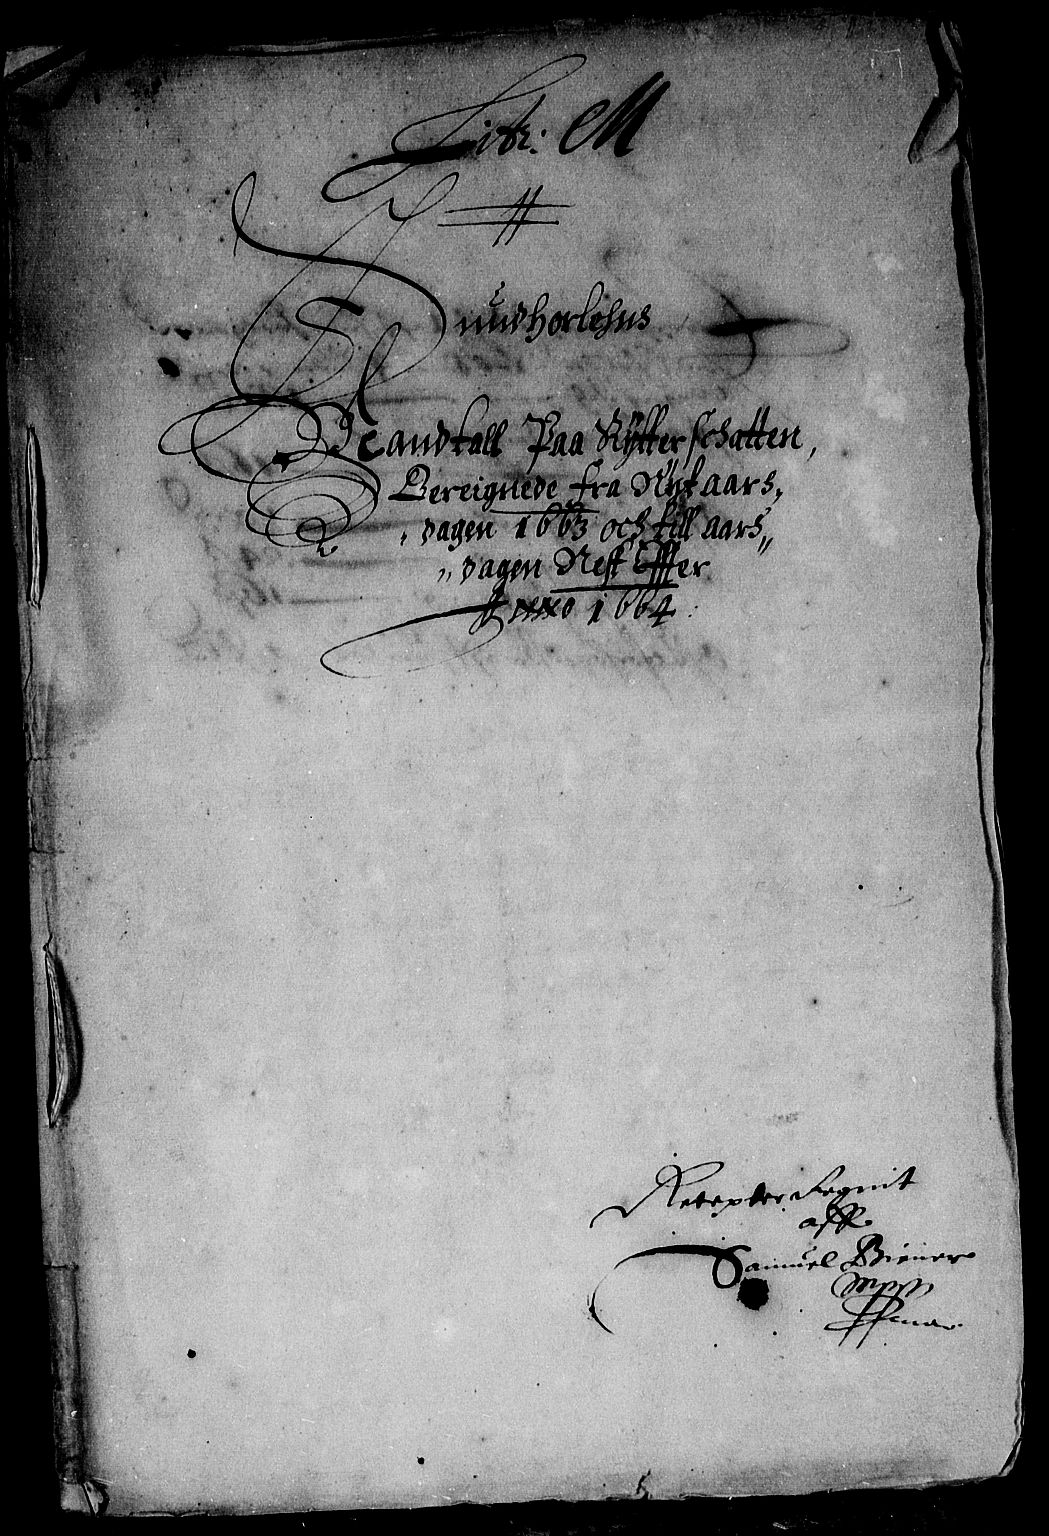 Litr: M
Sundhorlehns
Mandtall Paa Rytterschatten,
Bereignede fra Nytaars,
dagen 1663 och till aars,,
,, dagen Nest Effter
Anno 1664
aff
Samuel
mpp